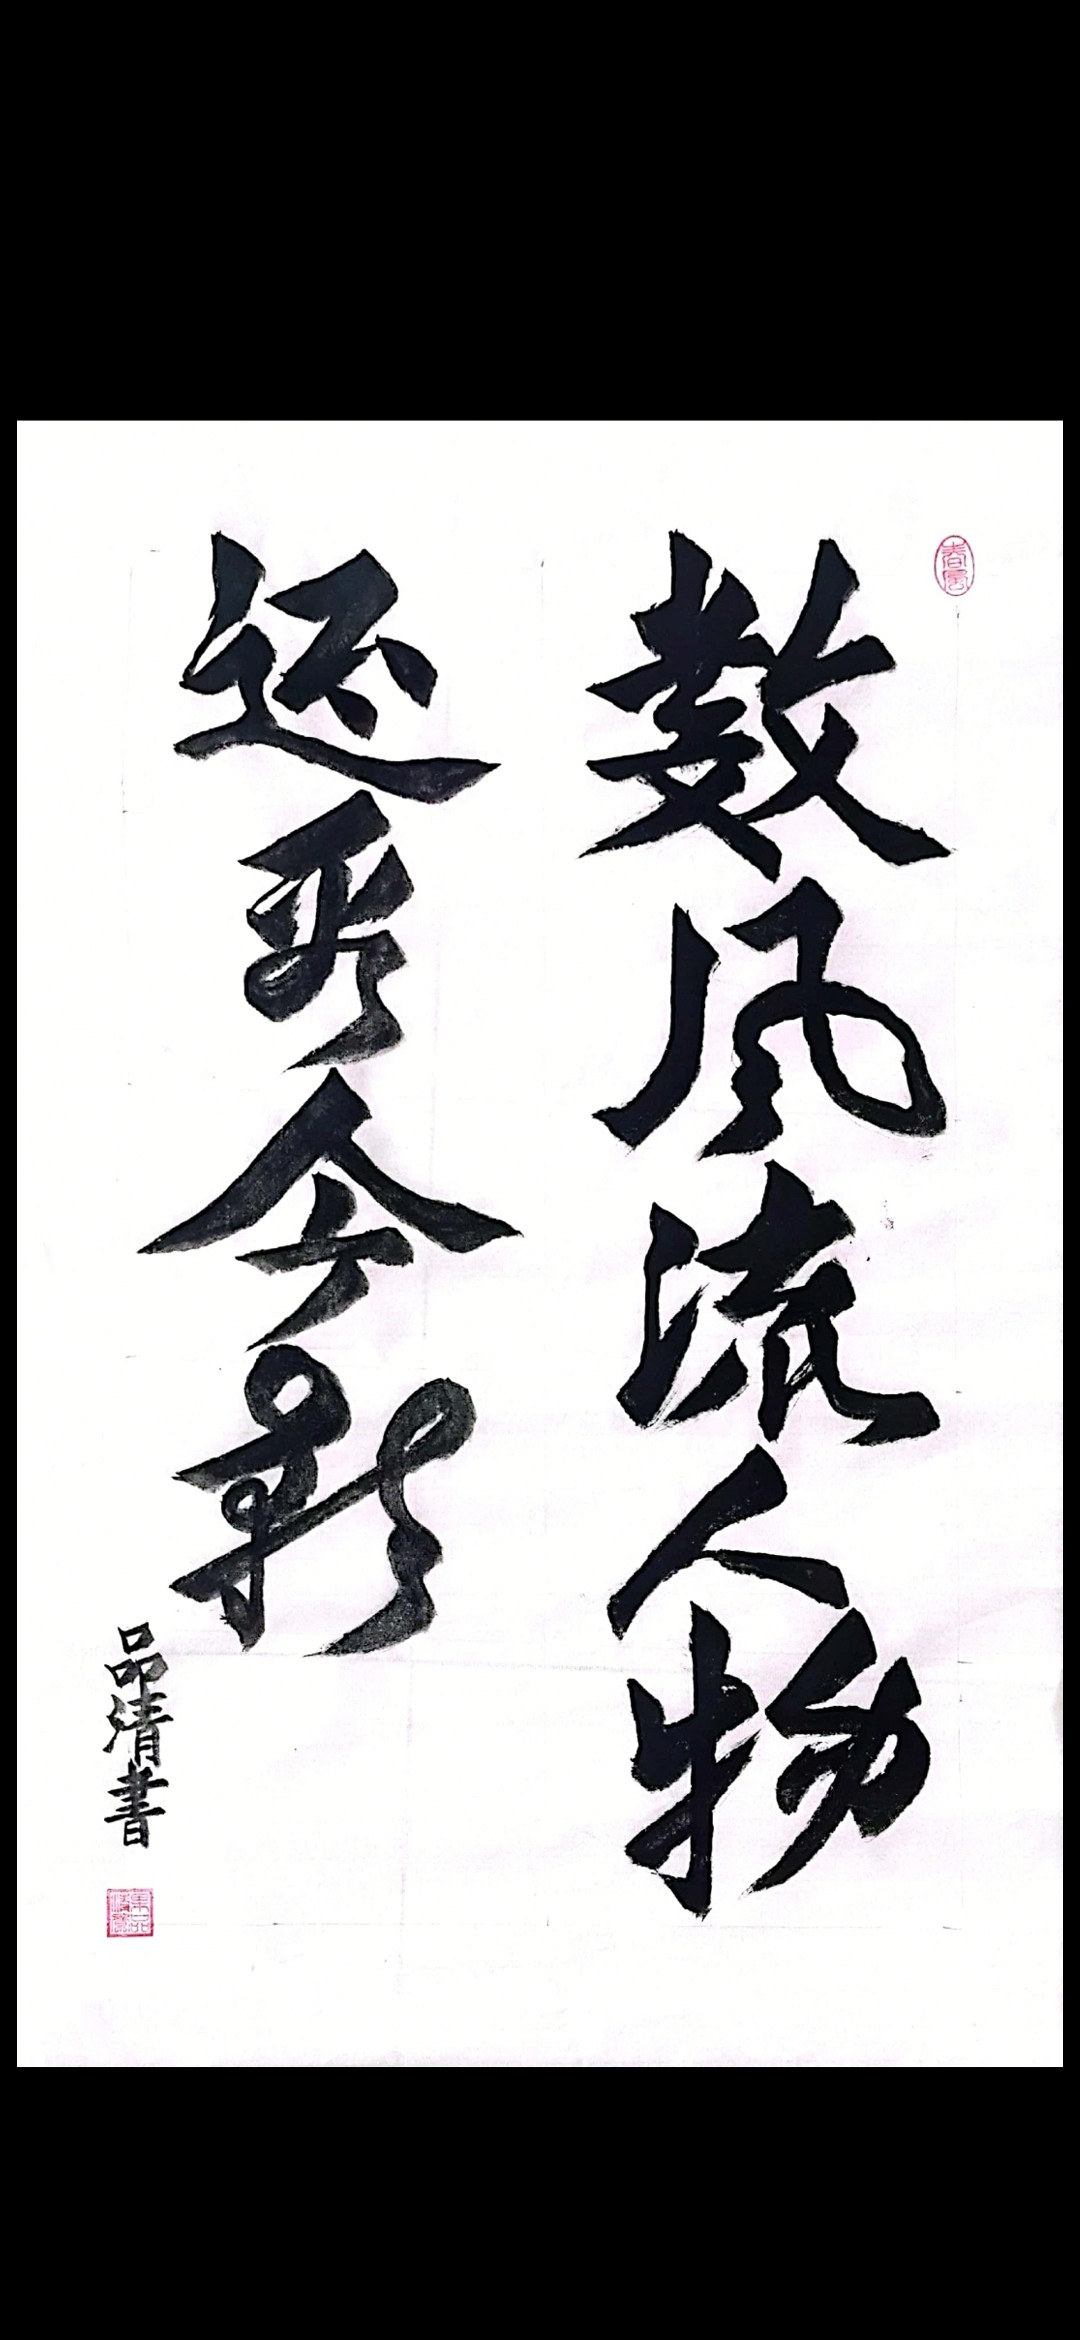 数风流人物
还看今朝
品清書